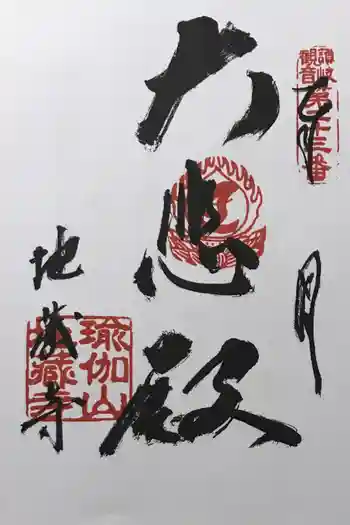 奉拝
讃岐
観音
第廿三番
月
大悲殿
地蔵寺
瑜伽山
地蔵寺